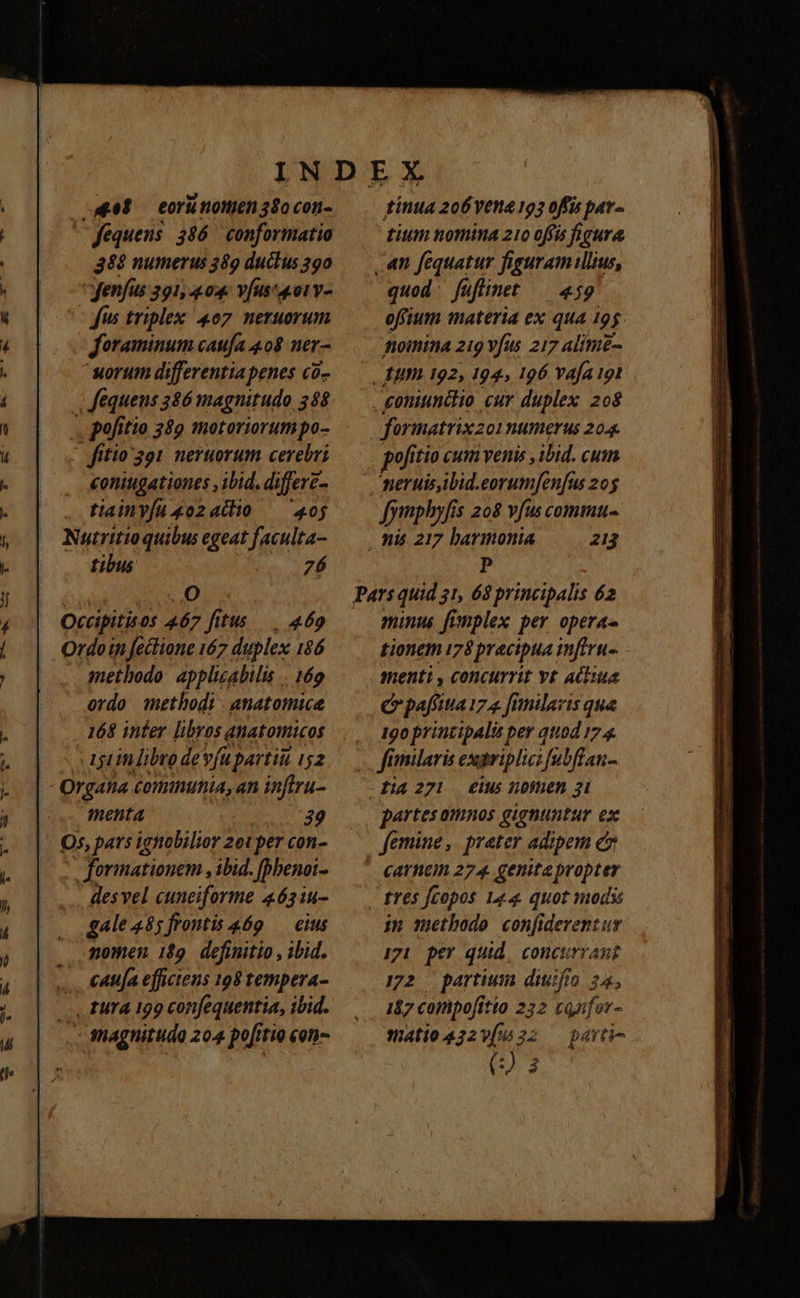 INDEX
408 eorũ nomen 380 con-
ſequens 386 conformatio
388 numerus 389 ductus 390
ſenſus 391, 404 vſus 401 v-
ſus triplex 407 neruorum
foraminum cauſa 408 ner-
uorum differentia penes cõ-
ſequens 386 magnitudo 388
poſitio 389 motoriorum po-
ſitio 391 neruorum cerebri
coniugationes , ibid. differẽ-
tia in vſu 402 actio 405
Nutritio quibus egeat faculta-
tibus 76
O
Occipitis os 467 ſitus 469
Ordo in ſectione 167 duplex 186
methodo applicabilis 169
ordo methodi anatomicæ
168 inter libros anatomicos
151 in libro de vſu partiũ 152
Organa communia, an inſtru-
menta 39
Os, pars ignobilior 201 per con-
formationem , ibid. ſphenoi-
des vel cuneiforme 463 iu-
gale 485 frontis 469 eius
nomen 189 definitio , ibid.
cauſa efficiens 198 tempera-
tura 199 conſequentia, ibid.
magnitudo 204 poſitio con-
tinua 206 vena 193 oſſis par-
tium nomina 210 oſſis figura
an ſequatur figuram illius,
quod ſuſtinet 459
oſſium materia ex qua 195
nomina 219 vſus 217 alimẽ-
tum 192, 194, 196 vaſa 191
coniunctio cur duplex 208
formatrix 201 numerus 204
poſitio cum venis , ibid. cum
neruis, ibid. eorum ſenſus 205
ſymphyſis 208 vſus commu-
nis 217 harmonia 213
P
Pars quid 31, 68 principalis 62
minus ſimplex per opera-
tionem 178 præcipua inſtru-
menti , concurrit vt actiua
& paſſiua 174 ſimilaris quæ
190 principalis per quod 174
ſimilaris ex triplici ſubſtan-
tia 271 eius nomen 31
partes omnes gignuntur ex
ſemine , præter adipem &
carnem 274 genitæ propter
tres ſcopos 144 quot modis
in methodo conſiderentur
171 per quid concurrant
172 partium diuiſio 34,
187 compoſitio 232 confor-
matio 432 vſus 32 parti-
(:) 3